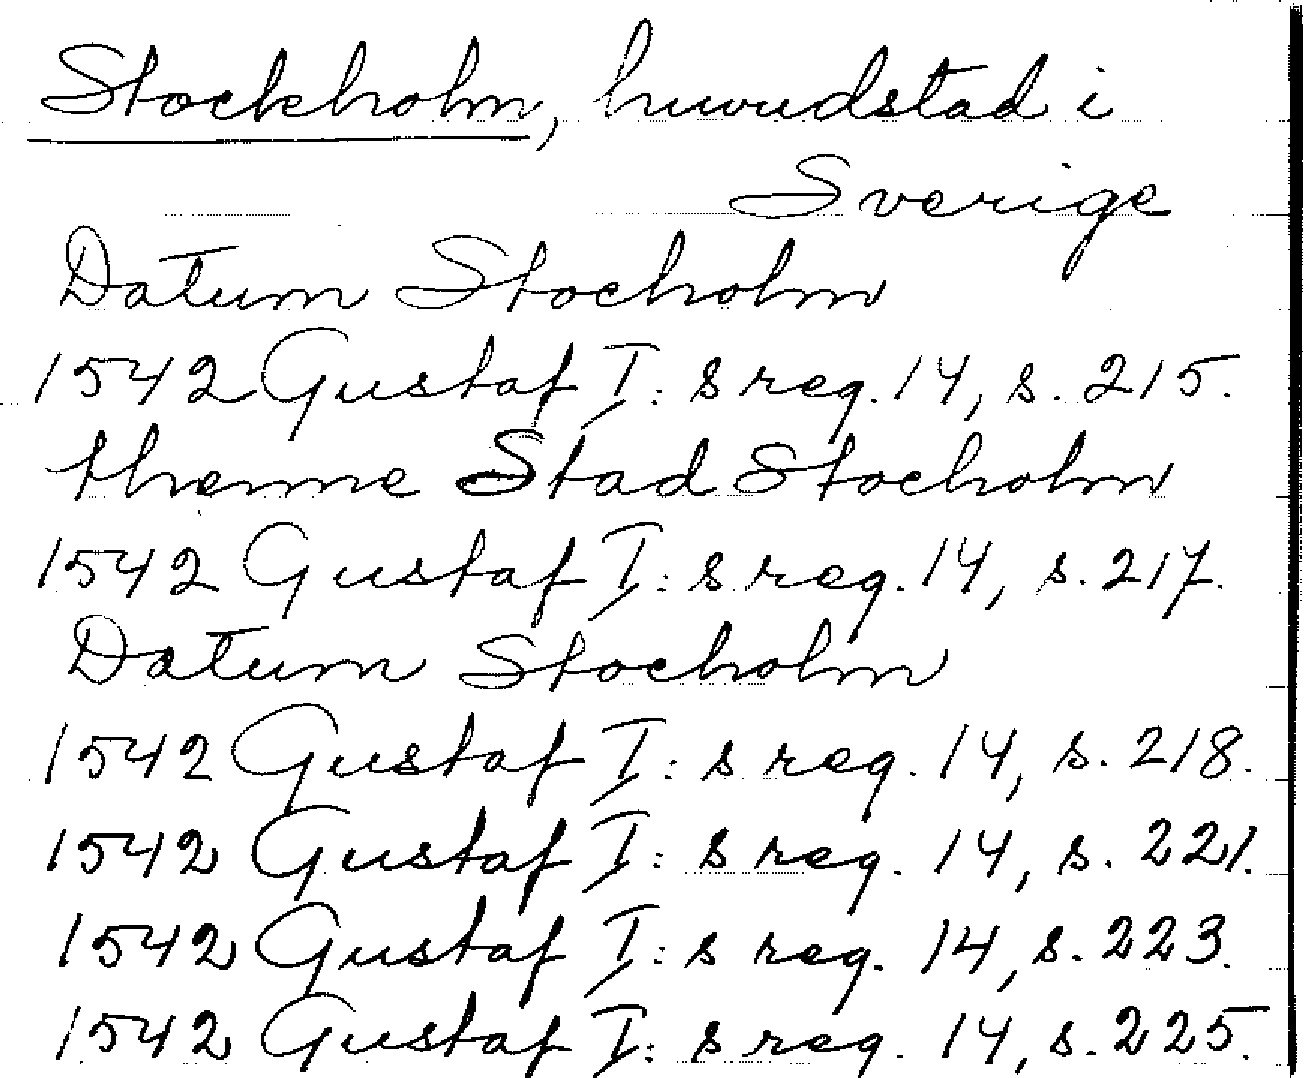 Stockholm, huvudstad i
Sverige
Datum Stocholm
1542 Gustaf I:s reg. 14, s. 215.
thenne Stad Stocholm
1542 Gustaf I:s reg. 14, s. 217.
Datum Stocholm
1542 Gustaf I:s reg. 14, s. 218.
1542 Gustaf I:s reg. 14, s. 221.
1542 Gustaf I:s reg. 14, s. 223.
1542 Gustaf I:s reg. 14, s. 225.